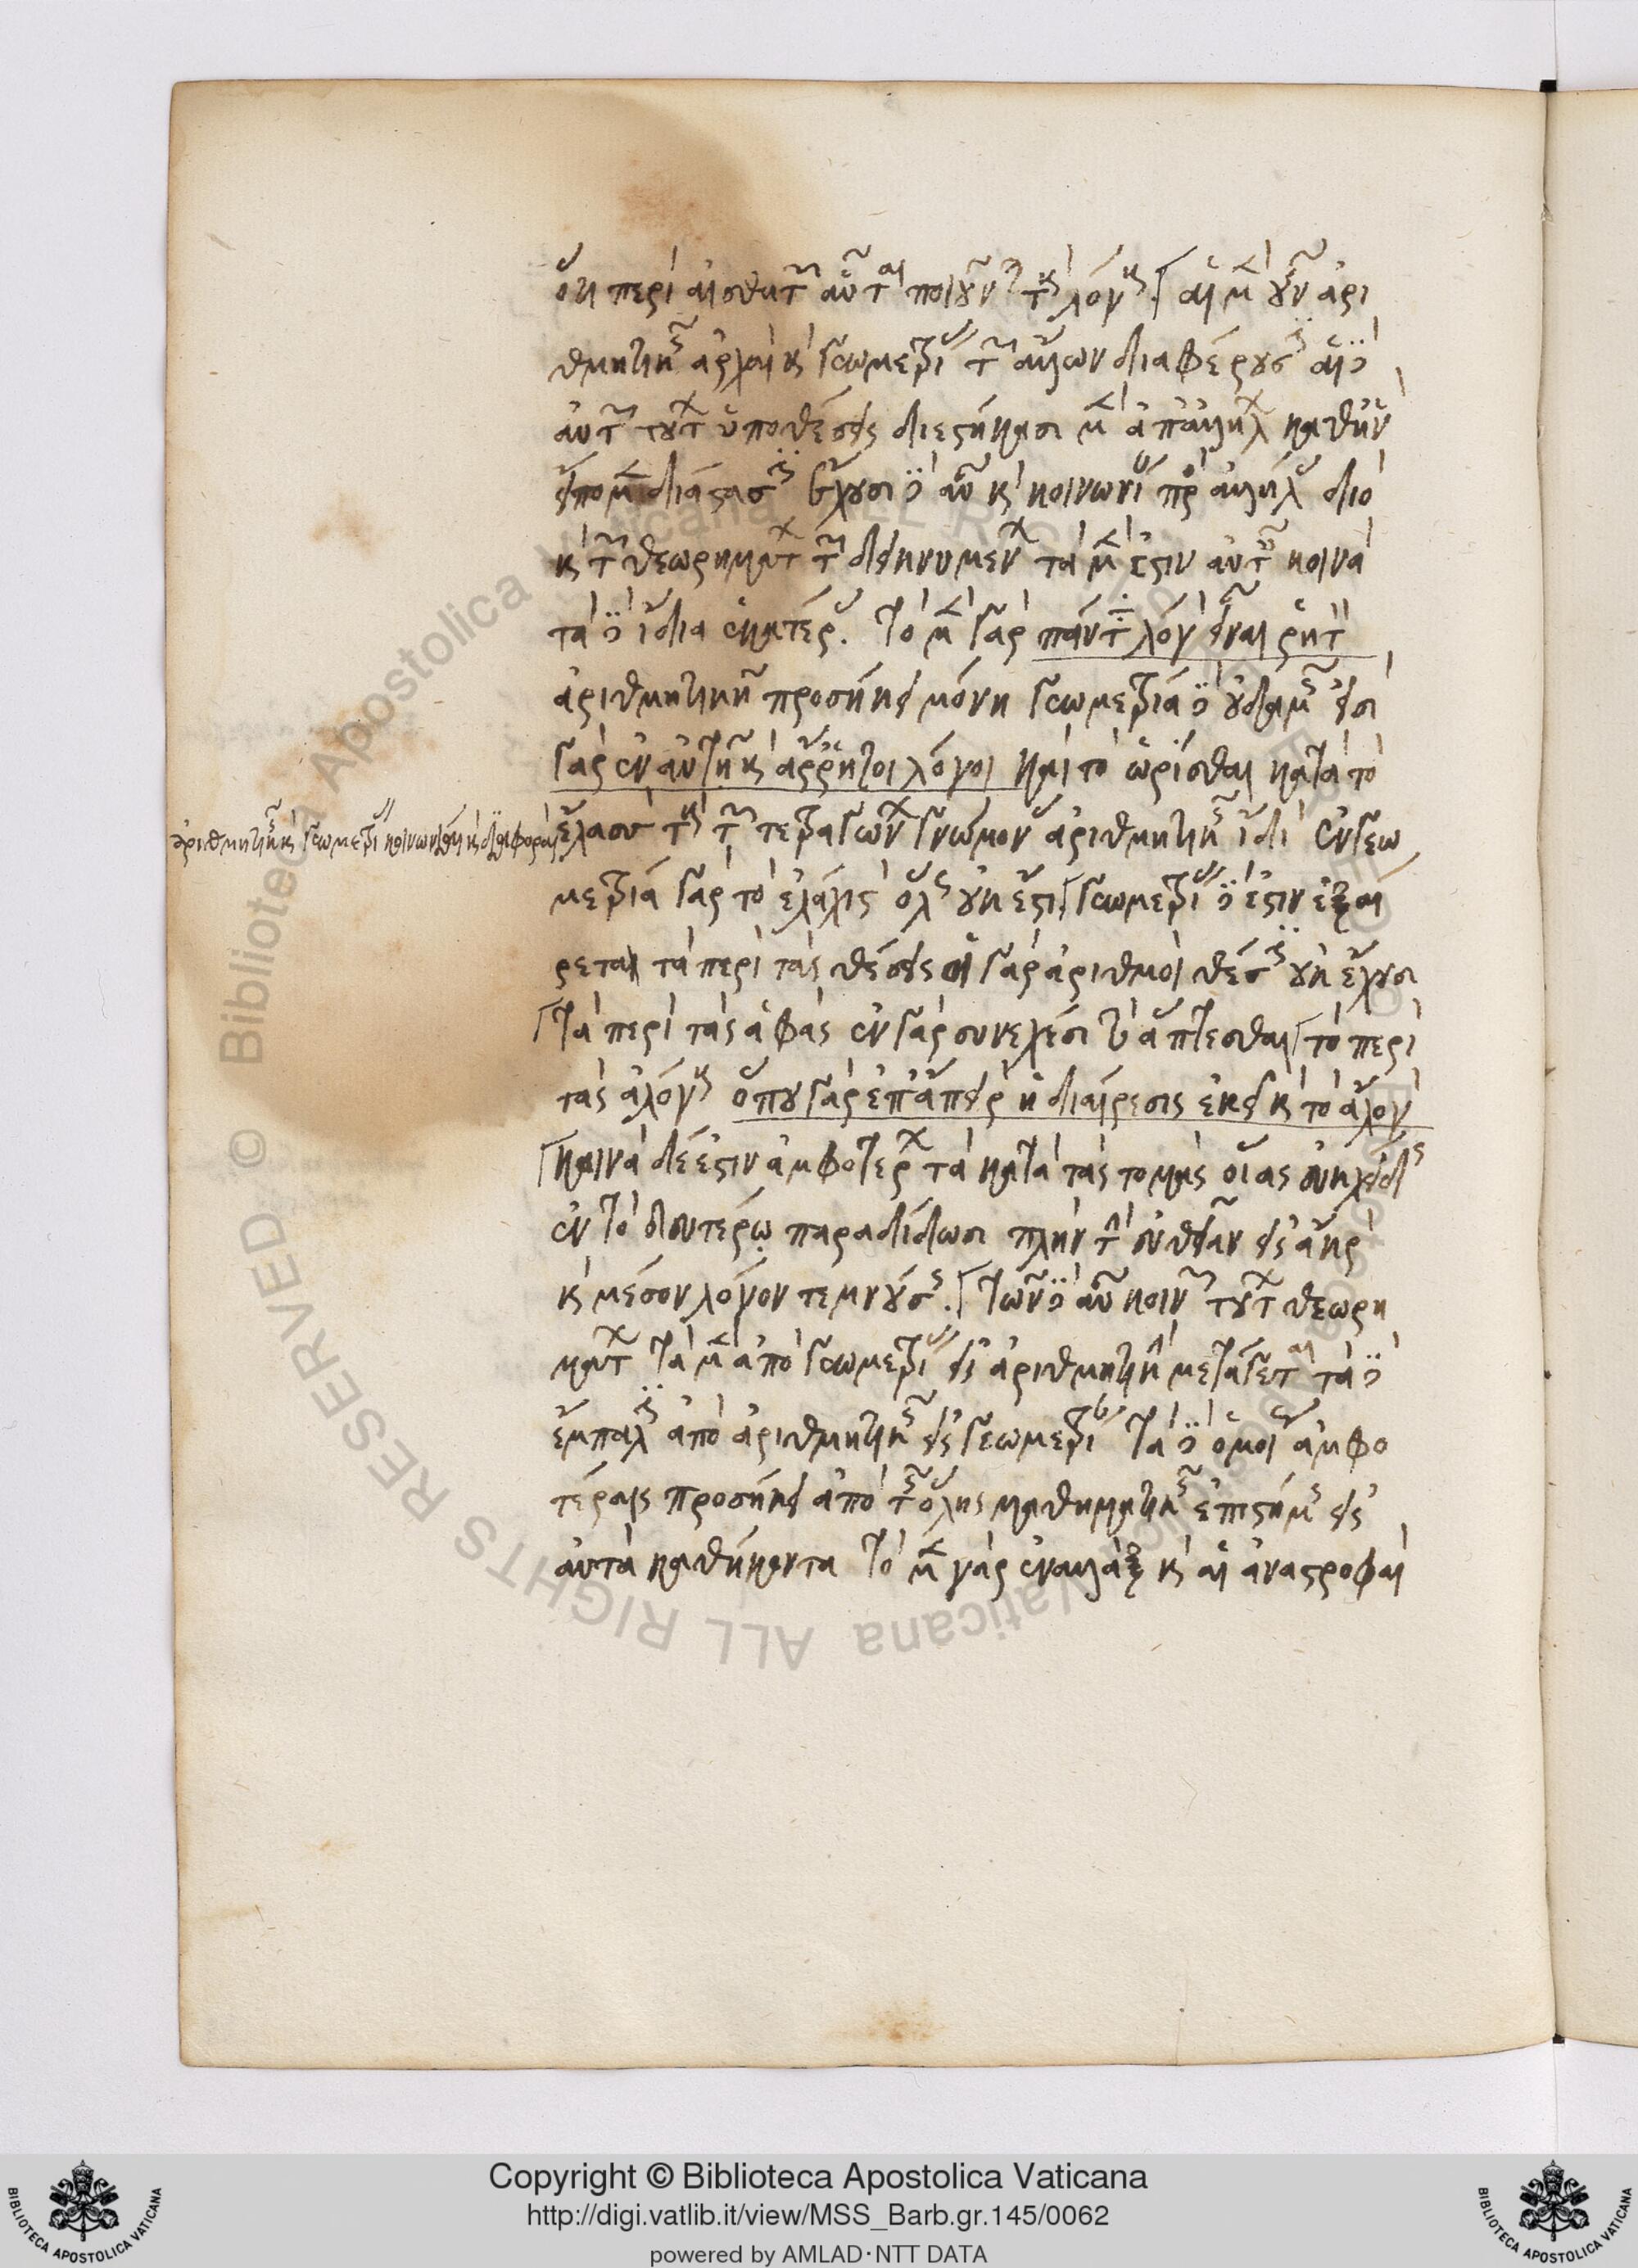 ὅτι περὶ αἰσθητῶν αὗται ποιοῦνται τοὺς λόγους. αἱ μὲν οὖν ἀρι
θμητικῆς ἀρχαὶ καὶ γεωμετρίας τῶν ἄλλων διαφέρουσιν αἱ δὲ
αὐτῶν τούτων ὑποθέσεις διεστήκασι μὲν ἀπ' ἀλλήλων καθ' ἣν
εἴπομεν διάστασιν ἔχουσι δὲ αὖ καὶ κοινωνίαν πρὸς ἀλλήλας διὸ
καὶ τῶν θεωρημάτων τῶν δεικνυμένων τὰ μέν ἐστιν αὐτῆς κοινὰ
τὰ δὲ ἴδια ἑκατέρας. τὸ μὲν γὰρ πάντα λόγον εἶναι ῥητὸν
ἀριθμητικῇ προσήκει μόνῃ γεωμετρίᾳ δὲ οὐδαμῶς εἰσὶ
γὰρ ἐν αὐτῇ καὶ ἄρρητοι λόγοι καὶ τὸ ὡρίσθαι κατὰ τὸ
ἔλασσον τοὺς τῶν τετραγώνων γνώμονας ἀριθμητικῆς ἴδιον ἐν γεω
μετρίᾳ γὰρ τὸ ἐλάχιστον ὅλως οὐκ ἔστι γεωμετρίας δέ ἐστιν ἐξαί
ρετα τὰ περὶ τὰς θέσεις οἱ γὰρ ἀριθμοὶ θέσιν οὐκ ἔχουσι
τὰ περὶ τὰς ἁφὰς ἐν γὰρ συνεχέσι τὸ ἅπτεσθαι τὸ περὶ
τὰς ἀλόγους ὅπου γὰρ ἐπ' ἄπειρον ἡ διαίρεσις ἐκεῖ καὶ τὸ ἄλογον
κοινὰ δέ ἐστιν ἀμφοτέρων τὰ κατὰ τὰς τομὰς οἵας Εὐκλείδης
ἐν τῷ δευτέρῳ παραδίδωσι πλὴν τῆς εὐθεῖαν εἰς ἄκρον
καὶ μέσον λόγον τεμνούσης. τῶν δὲ αὖ κοινῶν τούτων θεωρη
μάτων τὰ μὲν ἀπὸ γεωμετρίας εἰς ἀριθμητικὴν μετάγεται τὰ δὲ
ἔμπαλιν ἀπὸ ἀριθμητικῆς εἰς γεωμετρίαν τὰ δὲ ὁμοίως ἀμφο
τέραις προσήκει ἀπὸ τῆς ὅλης μαθηματικῆς ἐπιστήμης εἰς
αὐτὰ καθήκοντα τὸ μὲν γὰρ ἐναλλὰξ καὶ αἱ ἀναστροφαὶ
ἀριθμητικῆς καὶ γεωμετρίας κοινωνία καὶ διαφορά
Copyright © Biblioteca Apostolica Vaticana
http://digi.vatlib.it/view/MSS_Barb.gr.145/0062
powered by AMLAD·NTT DATA
BIBLIOTECA APOSTOLICA VATICANA
BIBLIOTECA APOSTOLICA VATICANA